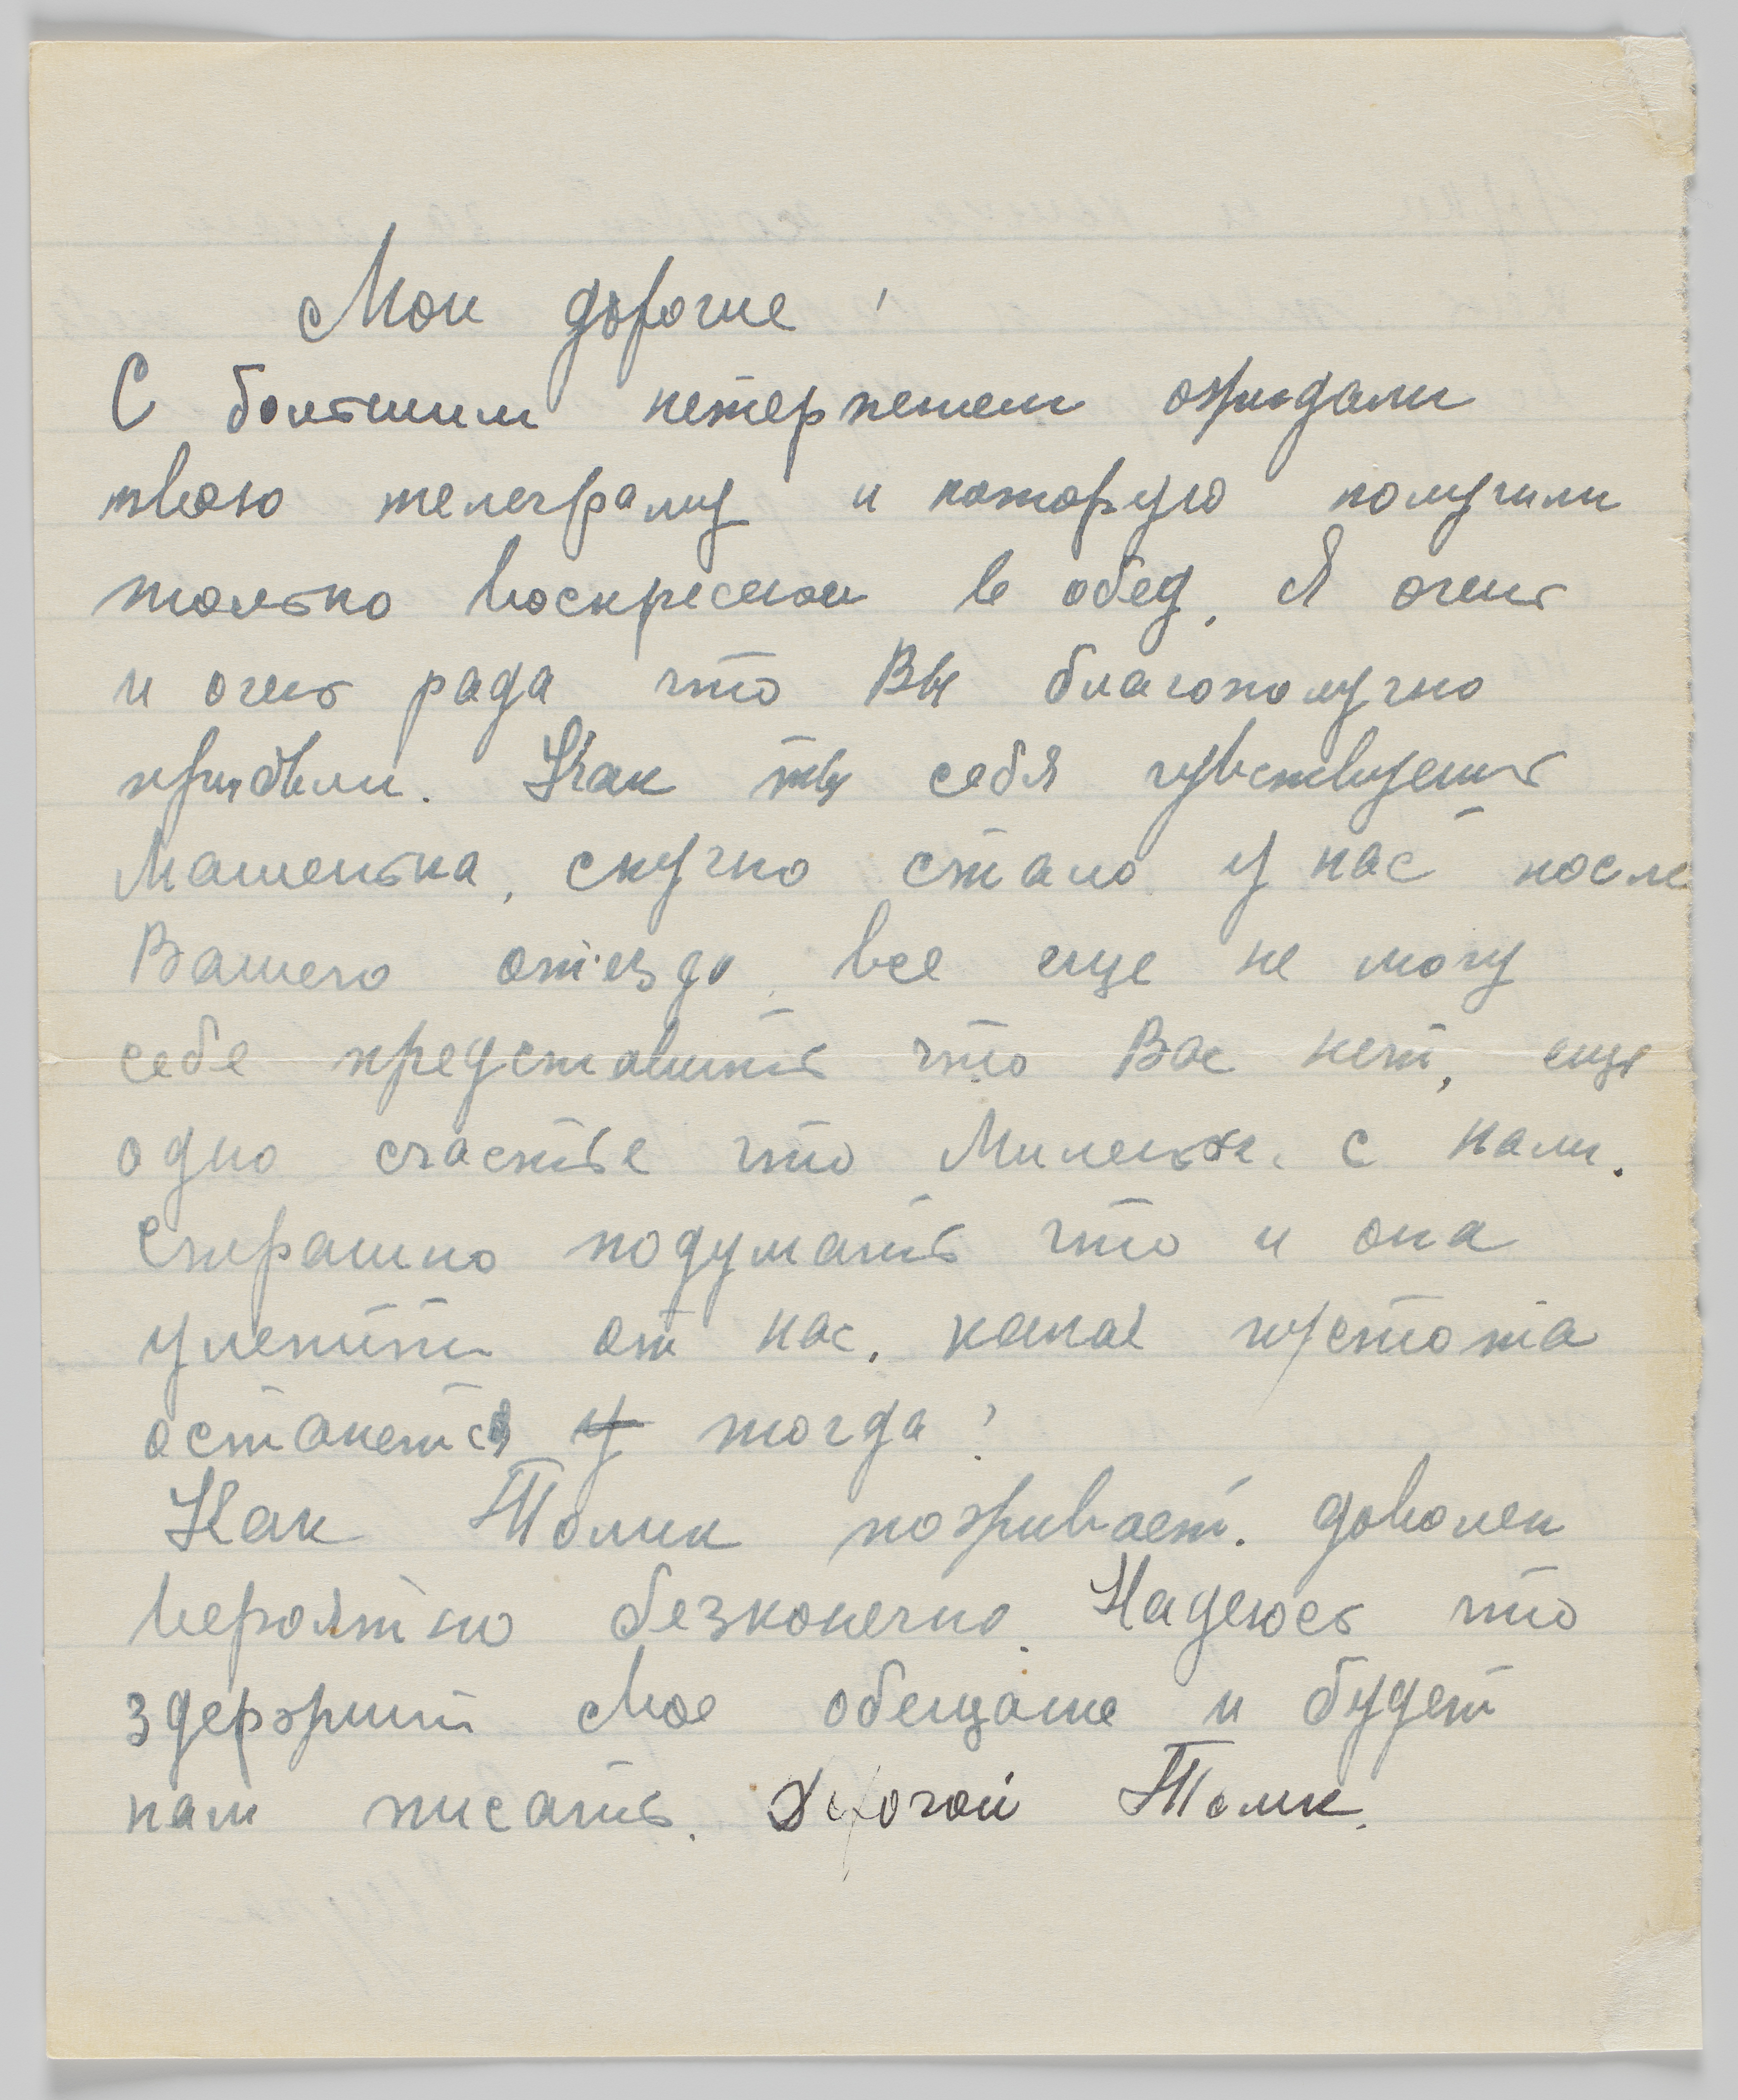 Мои дорогие!
С большим нетерпением ожидали
твою телеграму и которую получили
только воскресение в обед. Я очень
и очень рада что Вы благополучно
прибыли. Как ты себя чувствуешь
Машенька, скучно стало у нас после
Вашего отъезда, все еще не могу
себе представить что Вас нет, еще
одно счастье что Миленька с нами.
Страшно подумать что и она
улетит от нас, какая пустота
останется у тогда!
Как Толик поживает. доволен
вероятно безконечно. Надеюсь что
здержит свое обещание и будет
нам писать. Дорогой Толик.